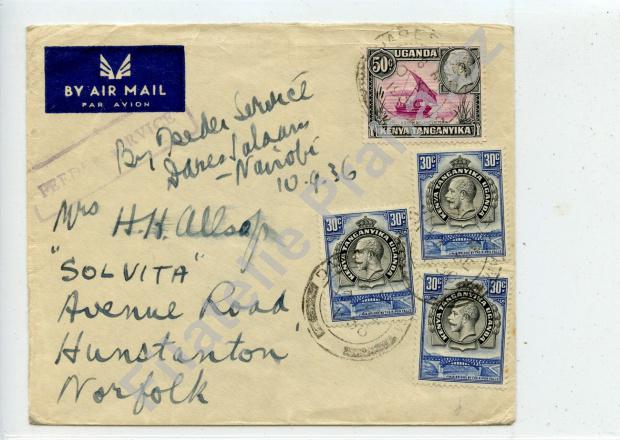 BY AIR MAIL
PAR AVION
FEEDER SERVICE
By Feeder Service
Daressalaam
- Nairobi
10.9.36
Mrs H.H. Allsop
"SOLVITA"
Avenue Road,
Hunstanton,
Norfolk
50c UGANDA
KENYA TANGANYIKA
30c 30c
KENYA TANGANYIKA UGANDA
30c 30c
KENYA TANGANYIKA UGANDA
30c 30c
KENYA TANGANYIKA UGANDA